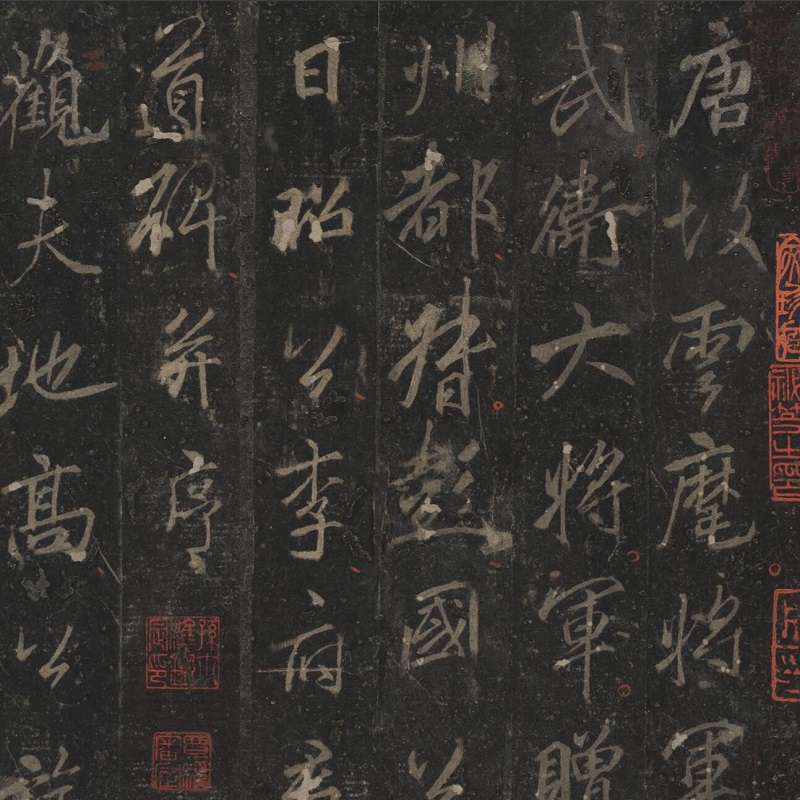 唐故雲麾將軍
武衛大將軍贈
州都督彭國公
曰昭公李府君
道碑并序
觀夫地高公